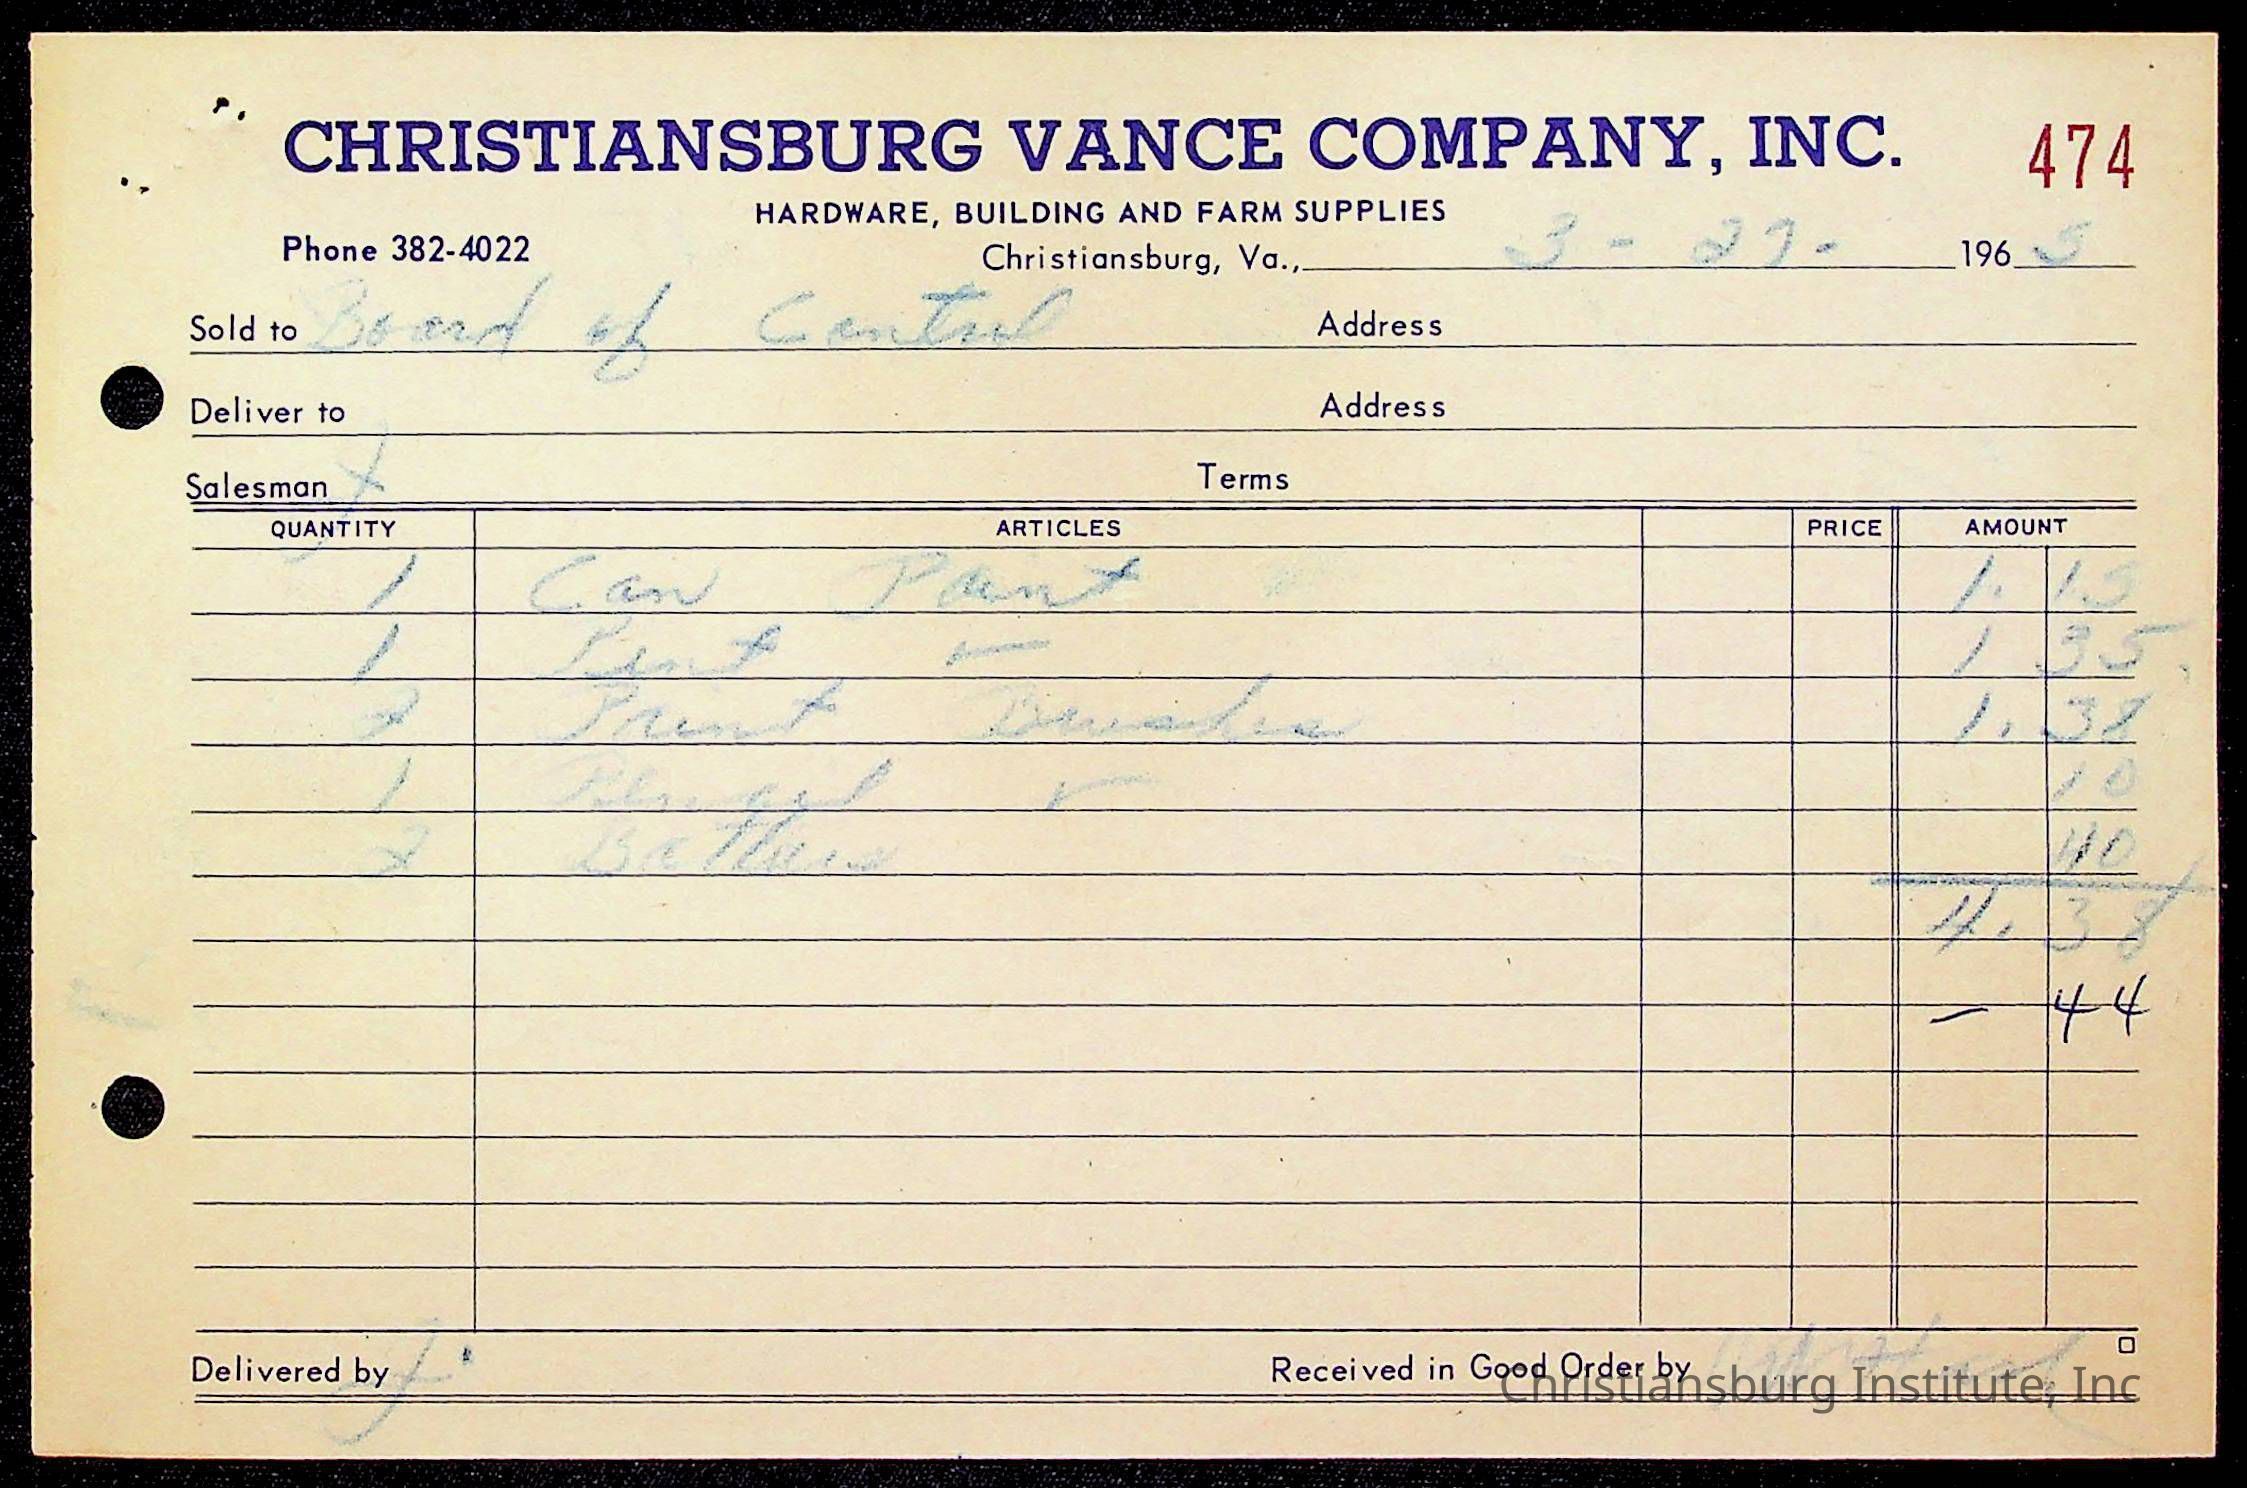 CHRISTIANSBURG VANCE COMPANY, INC. 474
HARDWARE, BUILDING AND FARM SUPPLIES
Phone 382-4022
Christiansburg, Va., 3 - 27 - 1965
Sold to Board of Control Address
Deliver to Address
Salesman Terms
QUANTITY ARTICLES PRICE AMOUNT
1 Can Paint 1. 15
1 1 35
2 Paint Brushes 1. 38
1 10
2 40
4. 38
- 44
Delivered by Received in Good Order by
Christiansburg Institute, Inc